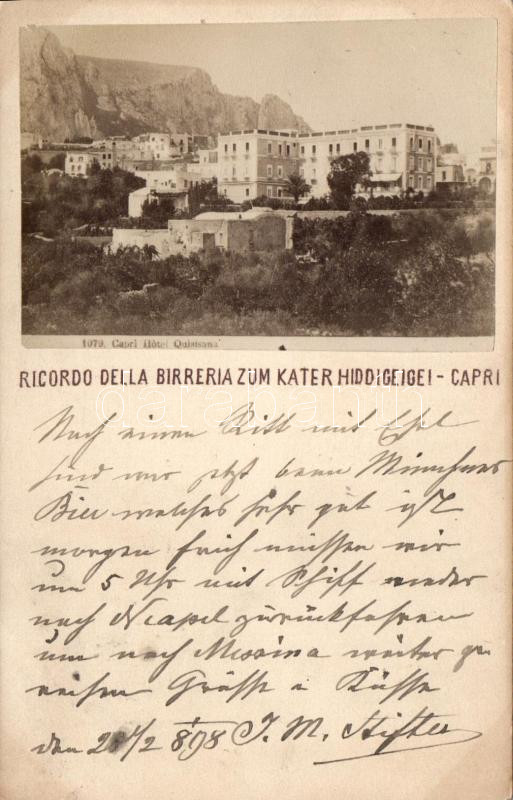 1079. Capri Hôtel Quisisana
RICORDO DELLA BIRRERIA ZUM KATER HIDDIGEIGEI - CAPRI
darabanth
Nach einen Ritt mit Esel
sind wir jetzt beim Münchner
Bier welches sehr gut ist
morgen früh müssen wir
um 5 Uhr mit Schiff wieder
nach Neapel zurückfahren
um nach Messina weiter zu
reisen Grüsse u Küsse
den /2 898 J. M.